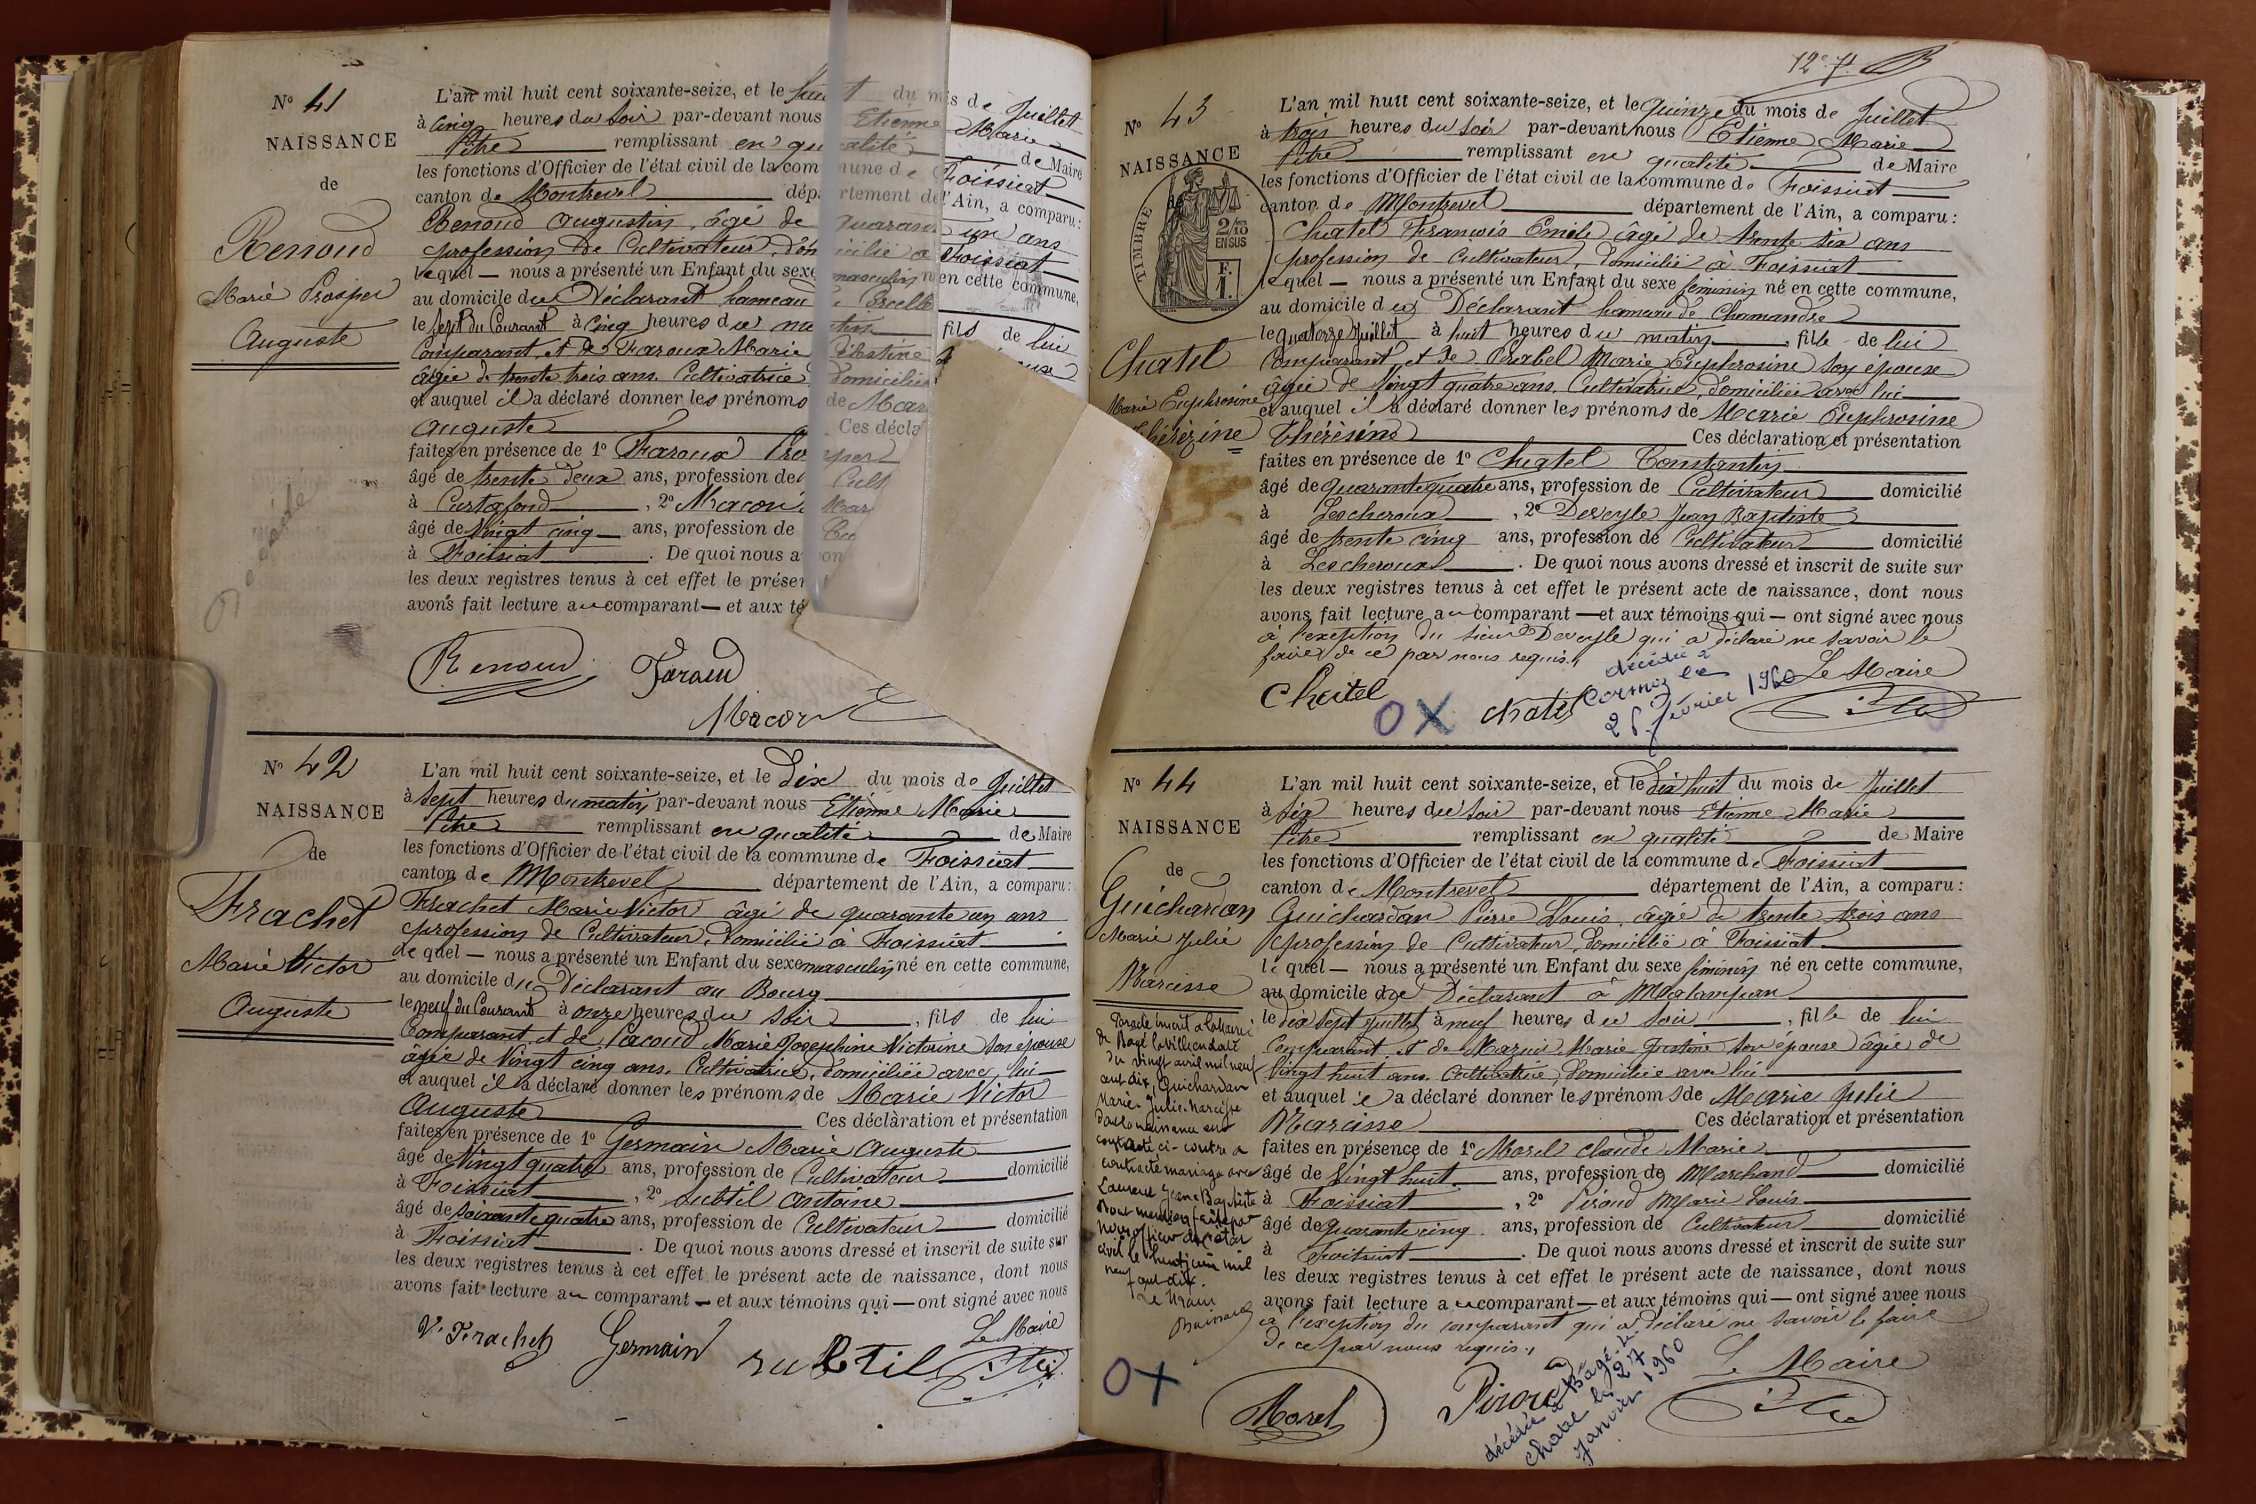 N° 41
NAISSANCE
de
Renoud
Marie Prosper
Auguste
Décédé
L'an mil huit cent soixante-seize, et le huit du mois de Juillet
à cinq heures du soir par-devant nous Etienne Marie
Pitre remplissant en qualité de Maire
les fonctions d'Officier de l'état civil de la commune de Foissiat
canton de Montrevel département de l'Ain, a comparu:
Renoud Augustin, âgé de quarante un ans
profession de Cultivateur, domicilié à Foissiat
lequel — nous a présenté un Enfant du sexe masculin né en cette commune,
au domicile du Déclarant hameau
le sept du Courant à cinq heures du matin fils de lui
Comparant, et de Faroux Marie Célestine
âgée de trente trois ans. Cultivatrice domiciliée
et auquel il a déclaré donner les prénoms de Mar
Auguste Ces décla
faites en présence de 1° Faroux Prosper
âgé de trente deux ans, profession de Cult
à Curtafond , 2° Macon Mar
âgé de Vingt cinq ans, profession de Cu
à Foissiat . De quoi nous avon
les deux registres tenus à cet effet le présen
avons fait lecture au comparant — et aux té
Renoud Faroud
Macon
N° 42
NAISSANCE
de
Frachet
Marie Victor
Auguste
L'an mil huit cent soixante-seize, et le Dix du mois de Juillet
à sept heures du matin par-devant nous Etienne Marie
Pitre remplissant en qualité de Maire
les fonctions d'Officier de l'état civil de la commune de Foissiat
canton de Montrevel département de l'Ain, a comparu:
Frachet Marie Victor âgé de quarante un ans
profession de Cultivateur, domicilié à Foissiat
lequel — nous a présenté un Enfant du sexe masculin né en cette commune,
au domicile du Déclarant au Bourg
le neuf du Courant à onze heures du soir , fils de lui
Comparant, et de Pacoud Marie Josephine Victorine son épouse
âgée de Vingt cinq ans. Cultivatrice, domiciliée avec lui
et auquel il a déclaré donner les prénoms de Marie Victor
Auguste Ces déclaration et présentation
faites en présence de 1° Germain Marie Auguste
âgé de Vingt quatre ans, profession de Cultivateur domicilié
à Foissiat , 2° Subtil Antoine
âgé de soixante quatre ans, profession de Cultivateur domicilié
à Foissiat . De quoi nous avons dressé et inscrit de suite sur
les deux registres tenus à cet effet le présent acte de naissance, dont nous
avons fait lecture au comparant — et aux témoins qui — ont signé avec nous
Le Maire
V. Frachet Germain subtil
12e f.
N° 43
NAISSANCE
de
TIMBRE
2/10
EN SUS
F.
1.
Chatel
Marie Euphrosine
Thérèzine
L'an mil huit cent soixante-seize, et le Quinze du mois de Juillet
à trois heures du soir par-devant nous Etienne Marie
Pitre remplissant en qualité de Maire
les fonctions d'Officier de l'état civil de la commune de Foissiat
canton de Montrevel département de l'Ain, a comparu:
Chatel François Emile âgé de trente six ans
profession de Cultivateur, domicilié à Foissiat
lequel — nous a présenté un Enfant du sexe féminin né en cette commune,
au domicile du Déclarant hameau de Chamandre
le quatorze Juillet à huit heures du matin , fille de lui
Comparant, et de Perabel Marie Euphrosine son épouse
âgée de Vingt quatre ans, Cultivatrice, domiciliée avec lui
et auquel il a déclaré donner les prénoms de Marie Euphrosine
Thérèsine Ces déclaration et présentation
faites en présence de 1° Chatel Constantin
âgé de quarante quatre ans, profession de Cultivateur domicilié
à Lescheroux , 2° Deveyle Jean Baptiste
âgé de trente cinq ans, profession de Cultivateur domicilié
à Lescheroux . De quoi nous avons dressé et inscrit de suite sur
les deux registres tenus à cet effet le présent acte de naissance, dont nous
avons fait lecture au comparant — et aux témoins qui — ont signé avec nous
à l'exeption du sieur Deveyle qui a déclaré ne savoir le
faire, de ce par nous requis.
Le Maire
Chatel OX Chatel
décédée à
Cormoz le
25 février 1960
N° 44
NAISSANCE
de
Guichardan
Marie Julie
Narcisse
L'an mil huit cent soixante-seize, et le Dix huit du mois de Juillet
à six heures du soir par-devant nous Etienne Marie
Pitre remplissant en qualité de Maire
les fonctions d'Officier de l'état civil de la commune de Foissiat
canton de Montrevel département de l'Ain, a comparu:
Guichardan Pierre Louis, âgé de trente trois ans
profession de Cultivateur, domicilié à Foissiat
lequel — nous a présenté un Enfant du sexe féminin né en cette commune,
au domicile du Déclarant à
le dix sept Juillet à neuf heures du soir , fille de lui
Comparant, et de Marie Justine son épouse âgée de
Vingt huit ans. Cultivatrice, domiciliée avec lui
et auquel il a déclaré donner les prénoms de Marie Julie
Narcisse Ces déclaration et présentation
faites en présence de 1° Morel Claude Marie
âgé de Vingt huit ans, profession de Marchand domicilié
à Foissiat , 2° Piroud Marie Louis
âgé de Quarante cinq ans, profession de Cultivateur domicilié
à Foissiat . De quoi nous avons dressé et inscrit de suite sur
les deux registres tenus à cet effet le présent acte de naissance, dont nous
avons fait lecture au comparant — et aux témoins qui — ont signé avec nous
à l'exeption du comparant qui a déclaré ne savoir le faire
de ce par nous requis.
Le Maire
Par acte inscrit à la Mairie
de Bagé la Ville en date
du vingt avril mil neuf
cent dix, Guichardan
Marie Julie Narcisse
dont la naissance est
constatée ci-contre a
contracté mariage avec
Laurent Jean Baptiste
Dont mention faite par
nous officier de l'état
civil le huit juin mil
neuf cent dix.
Le Maire
OX
Morel Piroud
décédée à Bagé-le-
Chatel le 27
Janvier 1960